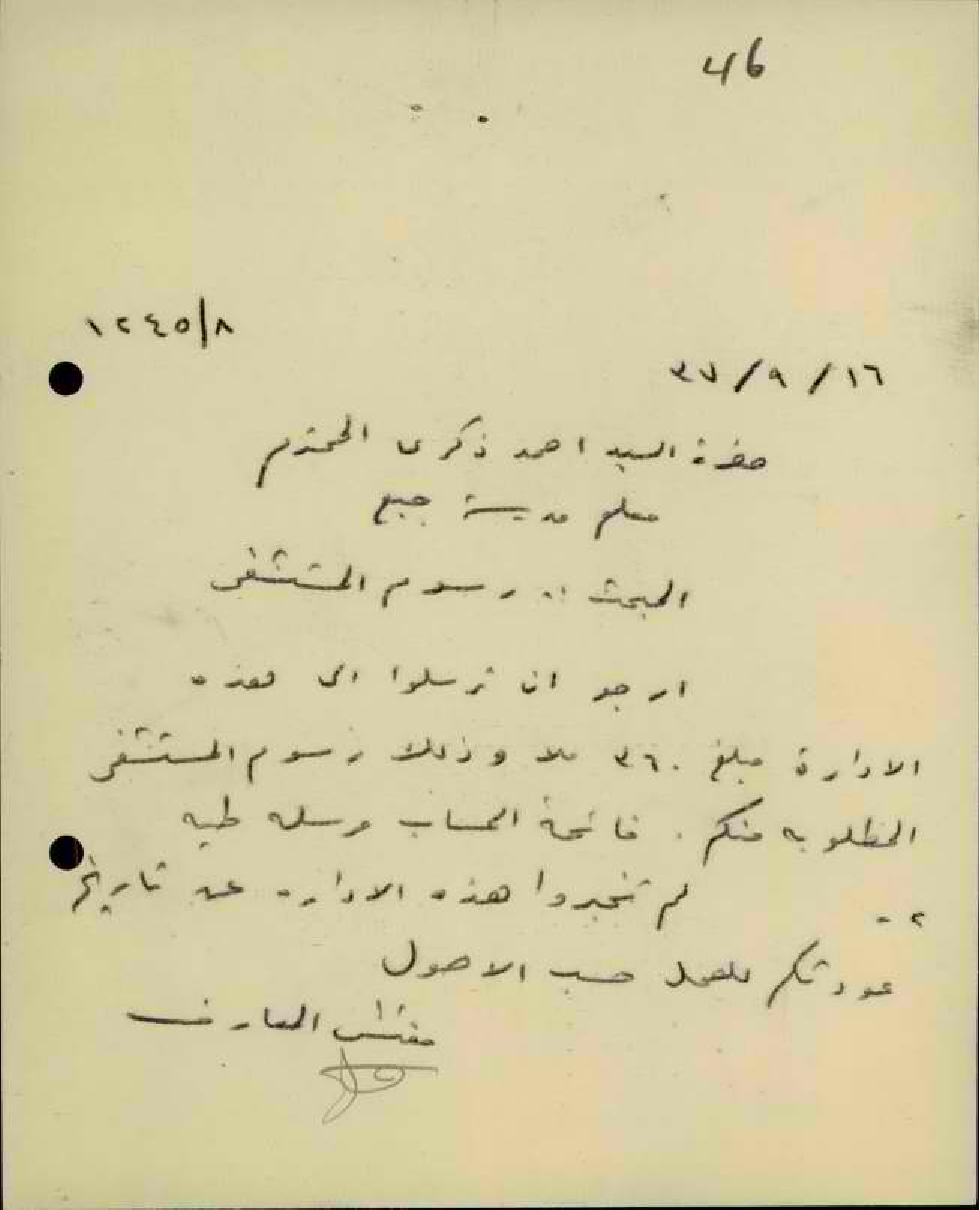 46
١٢٤٥/٨
١٦/ ٩/ ٣٧
حضرة السيد احمد ذكرى المحترم
معلم مدرسة جبع
المبحث :. رسوم المستشفى
ارجو ان ترسلوا الى هذه
الادارة مبلغ ٣٦٠ ملا وذلك رسوم المستشفى
المطلوبه منكم . قائمة الحساب مرسله طيه
٢- لم تخبروا هذه الاداره عن تاريخ
عودتكم للعمل حسب الاصول
مفتش المعارف